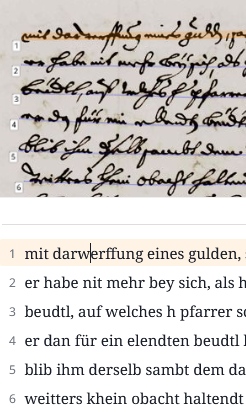 mit darwerffung eines gulden,
er habe nit mehr bey sich, als
beudtl, auf welches h pfarrer
er dan für ein elendten beudtl
blib ihm derselb sambt dem
weitters khein obacht halten
1 mit darwerffung eines gulden,
2 er habe nit mehr bey sich, als h
3 beudtl, auf welches h pfarrer
4 er dan für ein elendten beudtl
5 blib ihm derselb sambt dem da
6 weitters khein obacht haltendt